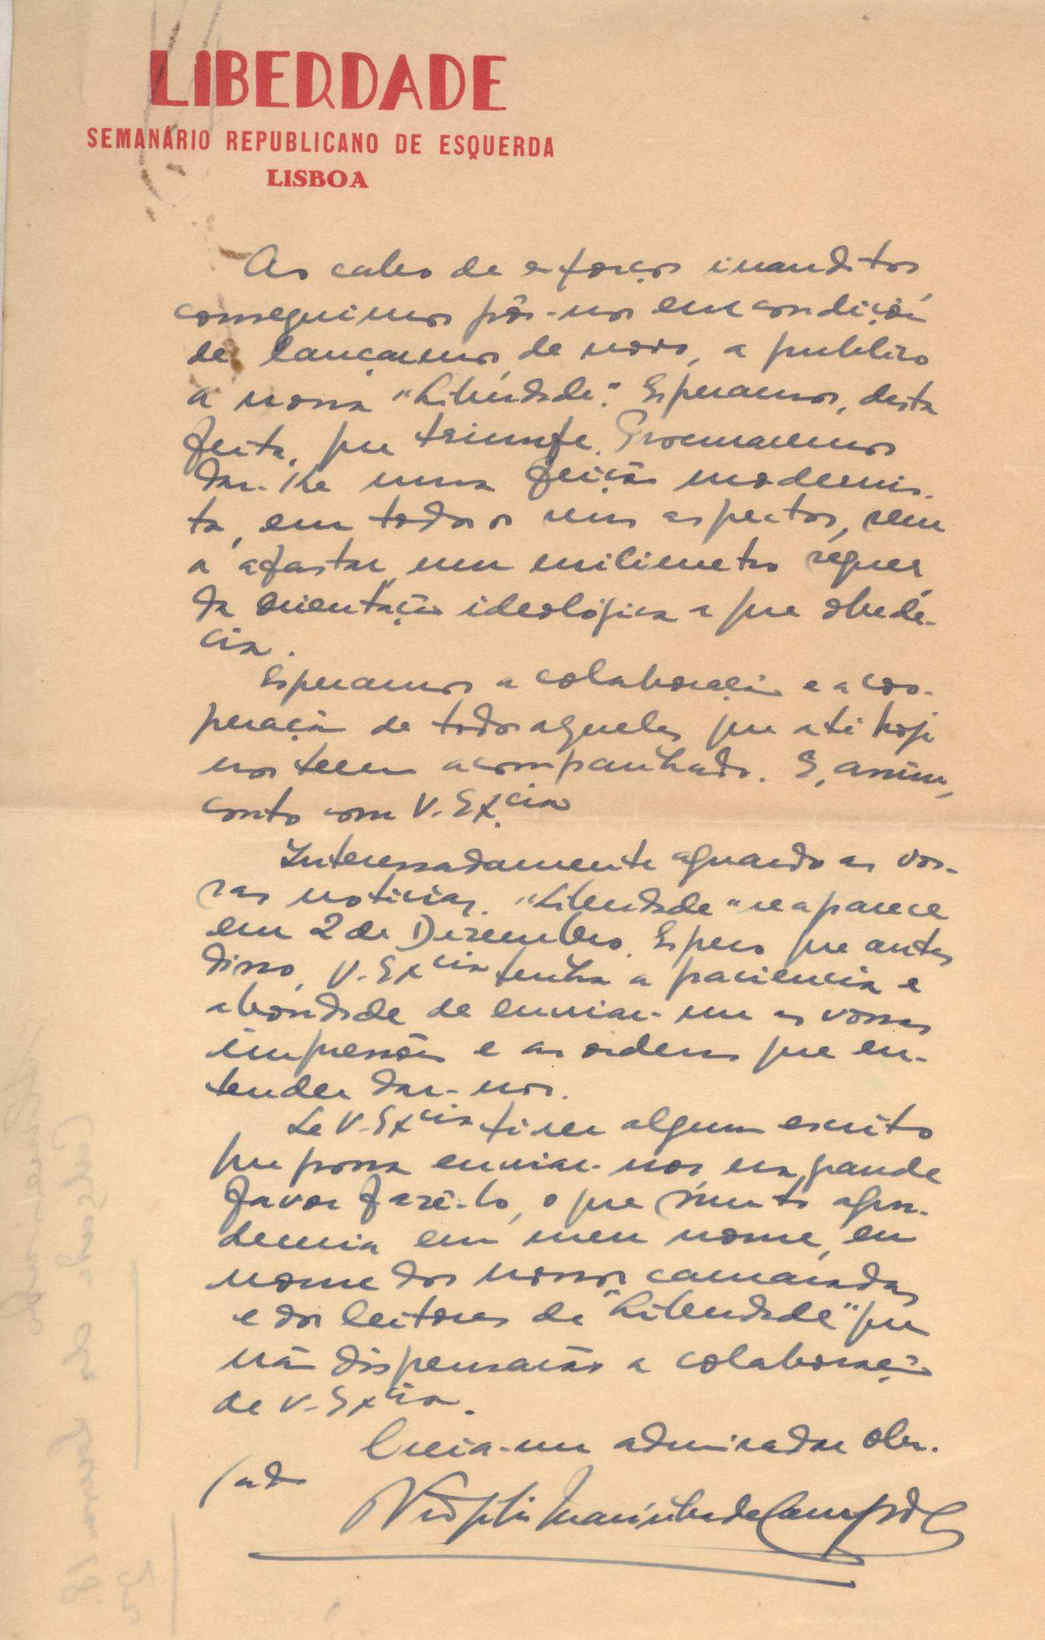 LIBERDADE
SEMANÁRIO REPUBLICANO DE ESQUERDA
LISBOA
Ao cabo de esforços inauditos
conseguimos pôr-nos em condições
de lançarmos, de novo, a publico
a nossa "Liberdade". Esperamos, desta
feita, que triunfe. Procuraremos
dar-lhe uma feição modernis-
ta, em todos os seus aspectos, sem
a afastar um milimetro sequer
da orientação ideológica a que obede-
cia.
Esperamos a colaboração e a coo-
peração de todos aqueles que até hoje
nos teem acompanhado. E, assim,
conto com V. Ex.cia
Interessadamente aguardo as vos-
sas noticias. "Liberdade" reaparece
em 2 de Dezembro. Espero que antes
disso, V. Excia tenha a paciencia e
a bondade de enviar-me as vossas
impressões e as ordens que en-
tender dar-nos.
Se V. Excia tiver algum escrito
que possa enviar-nos, era grande
favor fazê-lo, o que muito agra-
deceria em meu nome, em
nome dos nossos camaradas
e dos leitores da "Liberdade" que
não dispensarão a colaboração
de V. Excia.
Creia-me admirador obr.
de Campos